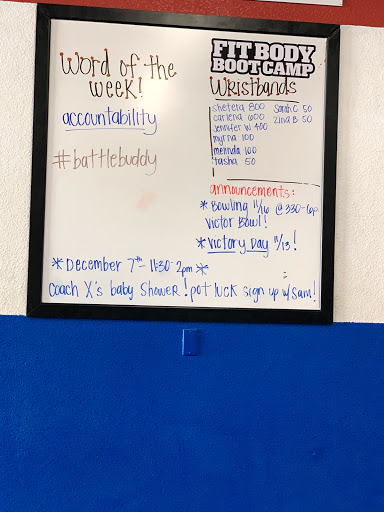 Word of the
week!
accountability
#battlebuddy
FIT BODY
BOOT CAMP
Wristbands
shetera 800
carlena 600
Jennifer W 400
myrna 100
melinda 100
tasha 50
Sarah C 50
Zina B 50
announcements:
* Bowling 11/16 @ 330-6p
Victor Bowl!
* Victory Day 11/13!
* December 7th - 11:30-2pm *
Coach X's baby shower! pot luck sign up w/ Sam!